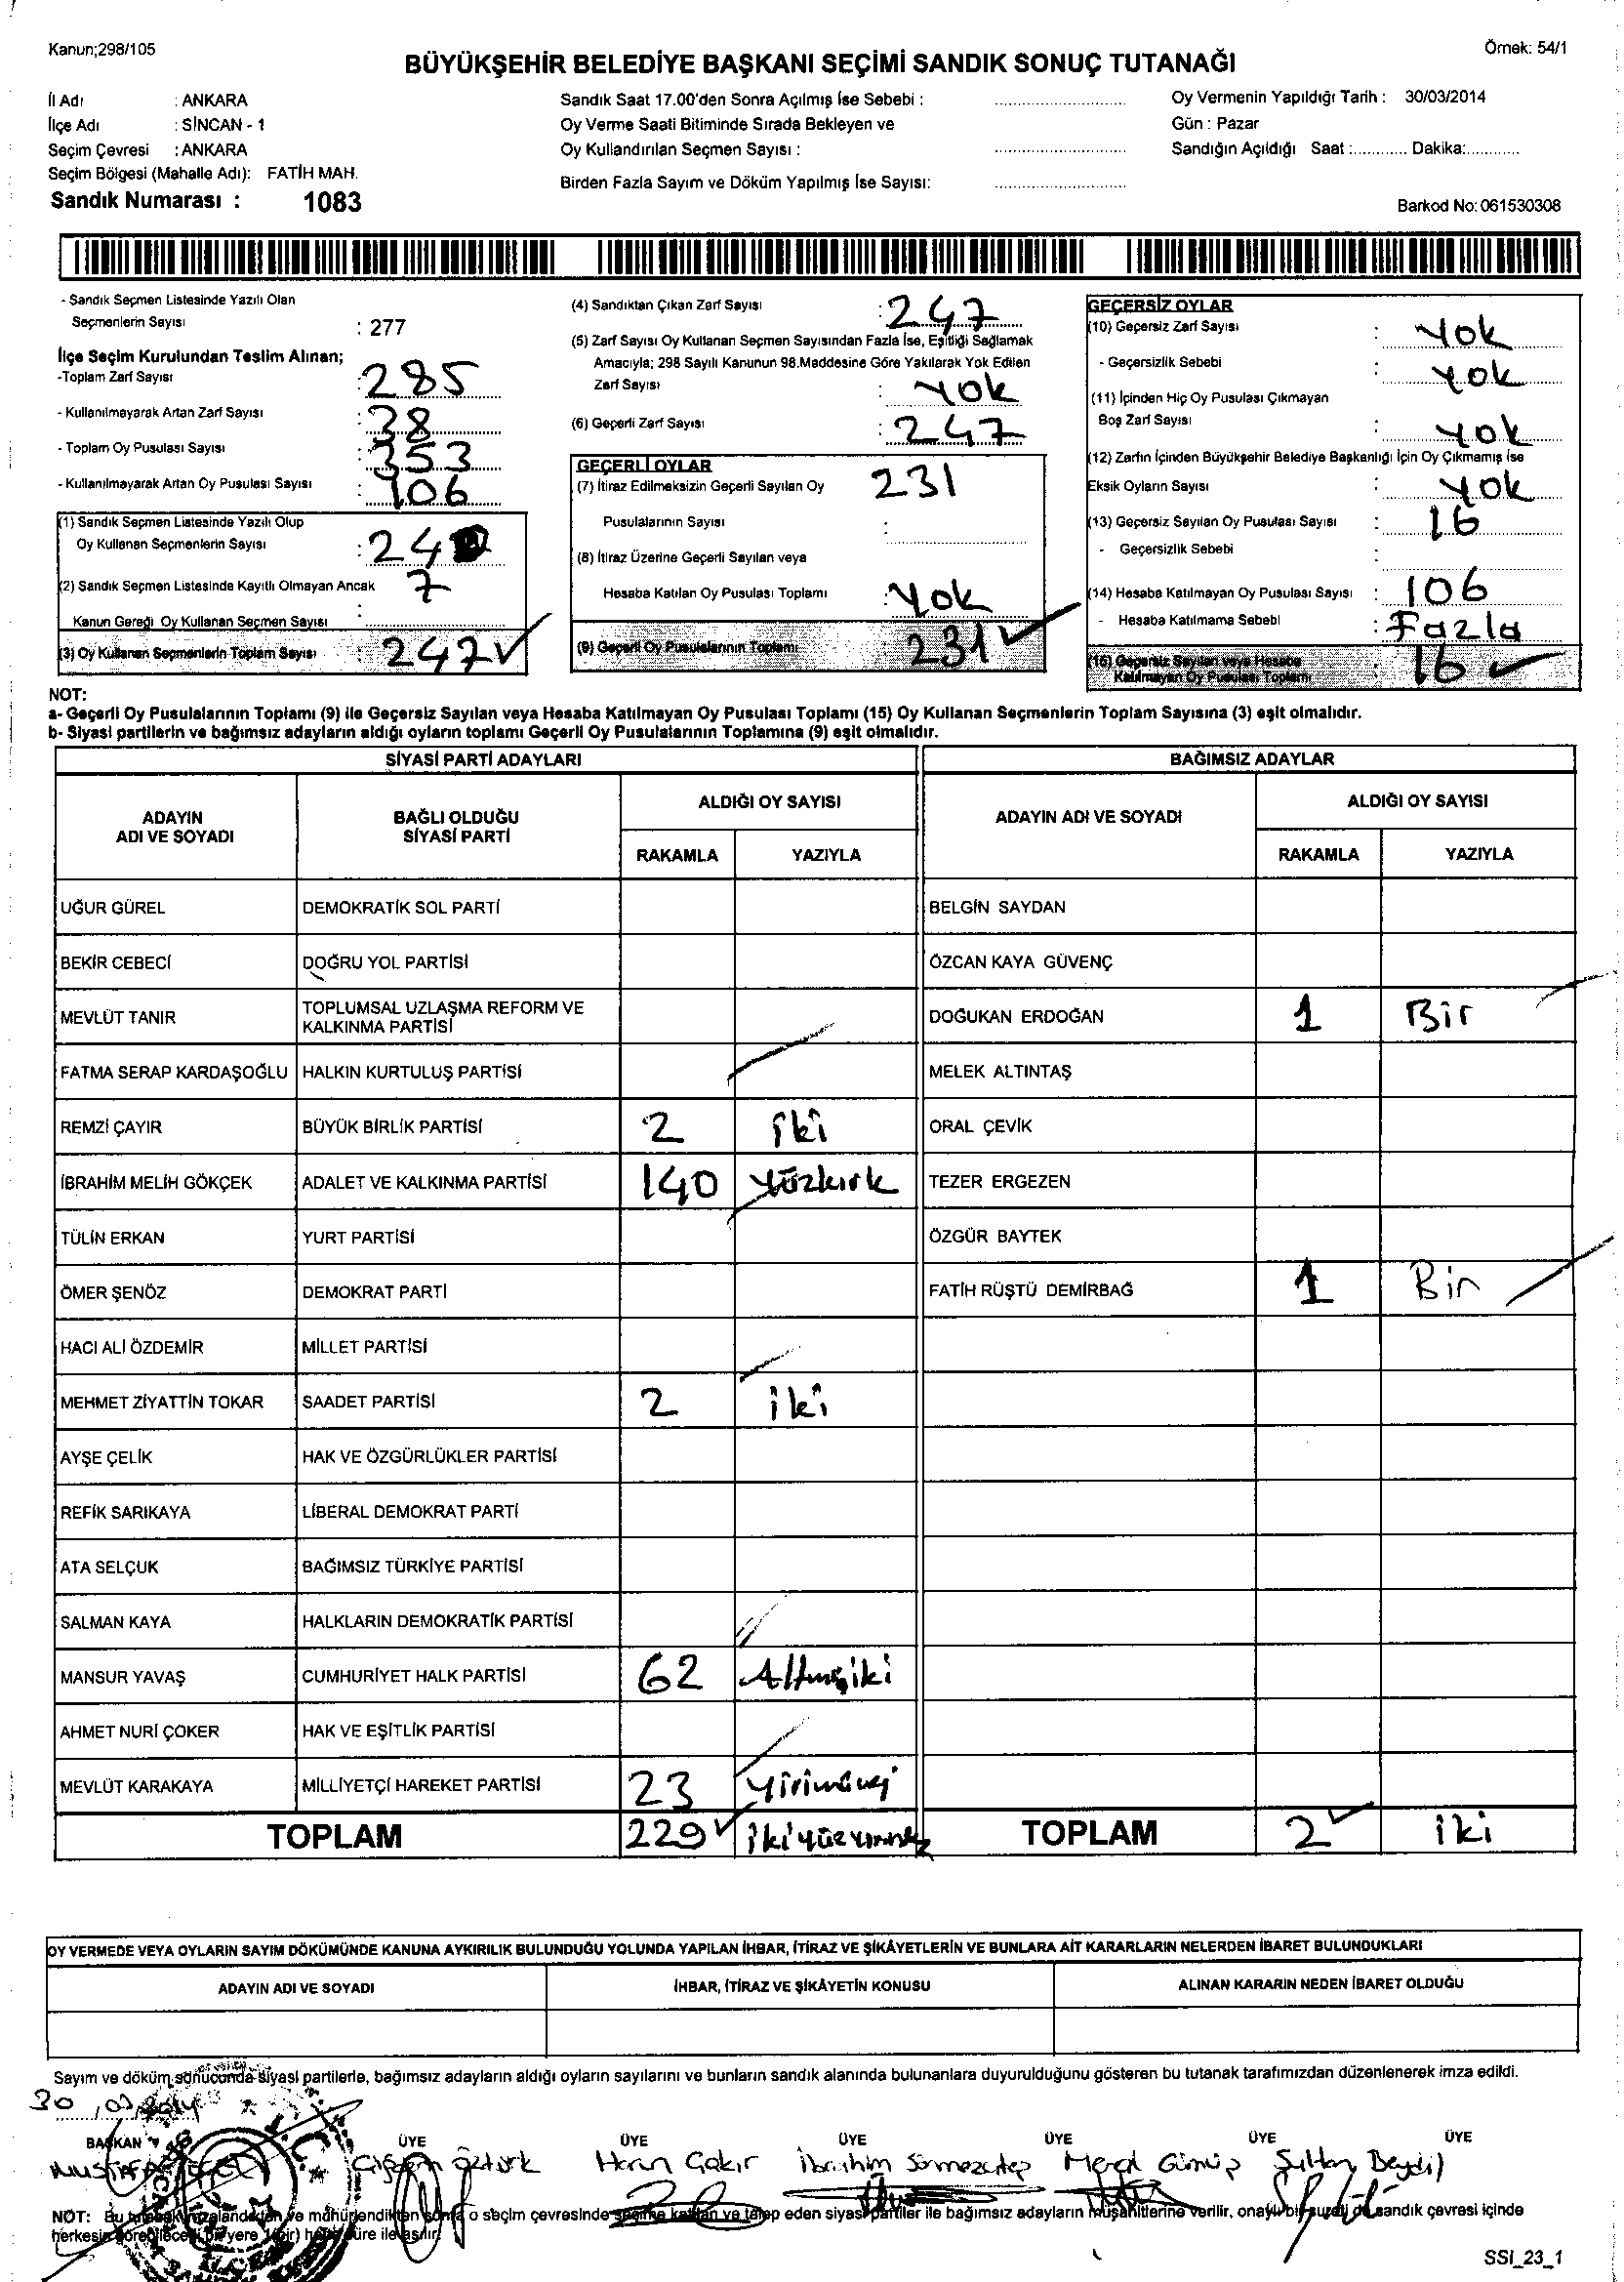 Kanun;298/105
Örnek: 54/1
BÜYÜKŞEHİR BELEDİYE BAŞKANI SEÇİMİ SANDIK SONUÇ TUTANAĞI
İl Adı : ANKARA
İlçe Adı : SİNCAN - 1
Seçim Çevresi : ANKARA
Seçim Bölgesi (Mahalle Adı): FATİH MAH.
Sandık Numarası : 1083
Sandık Saat 17.00'den Sonra Açılmış İse Sebebi :
Oy Verme Saati Bitiminde Sırada Bekleyen ve
Oy Kullandırılan Seçmen Sayısı :
Birden Fazla Sayım ve Döküm Yapılmış İse Sayısı:
Oy Vermenin Yapıldığı Tarih : 30/03/2014
Gün : Pazar
Sandığın Açıldığı Saat :........... Dakika:...........
Barkod No: 061530308
- Sandık Seçmen Listesinde Yazılı Olan
Seçmenlerin Sayısı : 277
İlçe Seçim Kurulundan Teslim Alınan;
-Toplam Zarf Sayısı : 285
- Kullanılmayarak Artan Zarf Sayısı : 38
- Toplam Oy Pusulası Sayısı : 353
- Kullanılmayarak Artan Oy Pusulası Sayısı : 106
(1) Sandık Seçmen Listesinde Yazılı Olup
Oy Kullanan Seçmenlerin Sayısı : 240
(2) Sandık Seçmen Listesinde Kayıtlı Olmayan Ancak 7
Kanun Gereği Oy Kullanan Seçmen Sayısı :
(3) Oy Kullanan Seçmenlerin Toplam Sayısı : 247
(4) Sandıktan Çıkan Zarf Sayısı : 247
(5) Zarf Sayısı Oy Kullanan Seçmen Sayısından Fazla İse, Eşitliği Sağlamak
Amacıyla; 298 Sayılı Kanunun 98.Maddesine Göre Yakılarak Yok Edilen
Zarf Sayısı : Yok
(6) Geçerli Zarf Sayısı : 247
GEÇERLİ OYLAR
(7) İtiraz Edilmeksizin Geçerli Sayılan Oy 231
Pusulalarının Sayısı :
(8) İtiraz Üzerine Geçerli Sayılan veya
Hesaba Katılan Oy Pusulası Toplamı : Yok
(9) Geçerli Oy Pusulalarının Toplamı 231
GEÇERSİZ OYLAR
(10) Geçersiz Zarf Sayısı : Yok
- Geçersizlik Sebebi : Yok
(11) İçinden Hiç Oy Pusulası Çıkmayan
Boş Zarf Sayısı : Yok
(12) Zarfın İçinden Büyükşehir Belediye Başkanlığı İçin Oy Çıkmamış İse
Eksik Oyların Sayısı : Yok
(13) Geçersiz Sayılan Oy Pusulası Sayısı : 16
- Geçersizlik Sebebi :
(14) Hesaba Katılmayan Oy Pusulası Sayısı : 106
- Hesaba Katılmama Sebebi : Fazla
(15) Geçersiz Sayılan veya Hesaba
Katılmayan Oy Pusulası Toplamı : 16
NOT:
a- Geçerli Oy Pusulalarının Toplamı (9) ile Geçersiz Sayılan veya Hesaba Katılmayan Oy Pusulası Toplamı (15) Oy Kullanan Seçmenlerin Toplam Sayısına (3) eşit olmalıdır.
b- Siyasi partilerin ve bağımsız adayların aldığı oyların toplamı Geçerli Oy Pusulalarının Toplamına (9) eşit olmalıdır.
SİYASİ PARTİ ADAYLARI
ADAYIN
ADI VE SOYADI
BAĞLI OLDUĞU
SİYASİ PARTİ
ALDIĞI OY SAYISI
RAKAMLA YAZIYLA
UĞUR GÜREL DEMOKRATİK SOL PARTİ
BEKİR CEBECİ DOĞRU YOL PARTİSİ
MEVLÜT TANIR TOPLUMSAL UZLAŞMA REFORM VE
KALKINMA PARTİSİ
FATMA SERAP KARDAŞOĞLU HALKIN KURTULUŞ PARTİSİ
REMZİ ÇAYIR BÜYÜK BİRLİK PARTİSİ 2 iki
İBRAHİM MELİH GÖKÇEK ADALET VE KALKINMA PARTİSİ 140 Yüzkırk
TÜLİN ERKAN YURT PARTİSİ
ÖMER ŞENÖZ DEMOKRAT PARTİ
HACI ALİ ÖZDEMİR MİLLET PARTİSİ
MEHMET ZİYATTİN TOKAR SAADET PARTİSİ 2 iki
AYŞE ÇELİK HAK VE ÖZGÜRLÜKLER PARTİSİ
REFİK SARIKAYA LİBERAL DEMOKRAT PARTİ
ATA SELÇUK BAĞIMSIZ TÜRKİYE PARTİSİ
SALMAN KAYA HALKLARIN DEMOKRATİK PARTİSİ
MANSUR YAVAŞ CUMHURİYET HALK PARTİSİ 62 Altmışiki
AHMET NURİ ÇOKER HAK VE EŞİTLİK PARTİSİ
MEVLÜT KARAKAYA MİLLİYETÇİ HAREKET PARTİSİ 23
TOPLAM 229
BAĞIMSIZ ADAYLAR
ADAYIN ADI VE SOYADI
ALDIĞI OY SAYISI
RAKAMLA YAZIYLA
BELGİN SAYDAN
ÖZCAN KAYA GÜVENÇ
DOĞUKAN ERDOĞAN 1 Bir
MELEK ALTINTAŞ
ORAL ÇEVİK
TEZER ERGEZEN
ÖZGÜR BAYTEK
FATİH RÜŞTÜ DEMİRBAĞ 1 Bir
TOPLAM 2 iki
OY VERMEDE VEYA OYLARIN SAYIM DÖKÜMÜNDE KANUNA AYKIRILIK BULUNDUĞU YOLUNDA YAPILAN İHBAR, İTİRAZ VE ŞİKÂYETLERİN VE BUNLARA AİT KARARLARIN NELERDEN İBARET BULUNDUKLARI
ADAYIN ADI VE SOYADI İHBAR, İTİRAZ VE ŞİKÂYETİN KONUSU ALINAN KARARIN NEDEN İBARET OLDUĞU
Sayım ve döküm sonucunda siyasi partilerle, bağımsız adayların aldığı oyların sayılarını ve bunların sandık alanında bulunanlara duyurulduğunu gösteren bu tutanak tarafımızdan düzenlenerek imza edildi.
30
BAŞKAN ÜYE ÜYE ÜYE ÜYE ÜYE ÜYE
Öztürk Harun Çakır İbrahim Gümüş Sultan
NOT: Bu ve mühürlendikten sonra o seçim çevresinde seçime katılan ve talep eden siyasi partiler ile bağımsız adayların müşahitlerine verilir, onaylı bir sureti de sandık çevresi içinde
herkesin göreceği bir yere süre ile asılır.
SSI_23_1